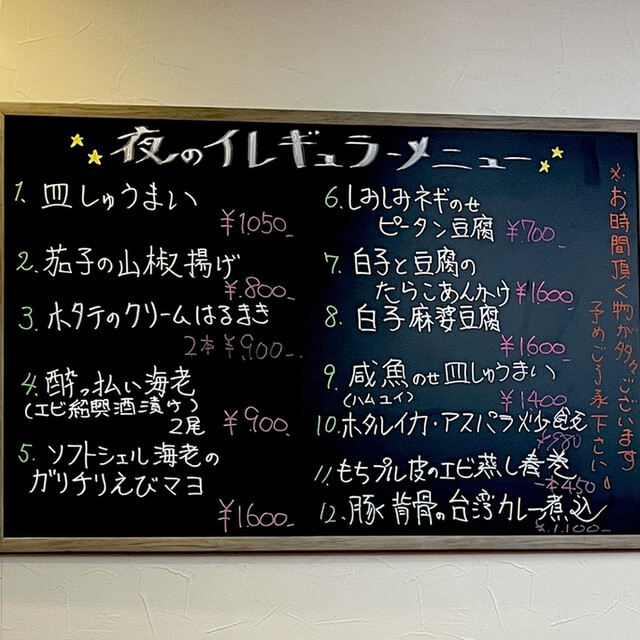 夜のイレギュラーメニュー
1. 皿しゅうまい
¥1050-
2. 茄子の山椒揚げ
¥800-
3. ホタテのクリームはるまき
2本 ¥900-
4. 酔っ払い海老
(エビ紹興酒漬ケ)
2尾 ¥900-
5. ソフトシェル海老の
ガリチリえびマヨ
¥1600-
6. しみしみネギのせ
ピータン豆腐 ¥700-
7. 白子と豆腐の
たらこあんかけ ¥1600-
8. 白子麻婆豆腐
¥1600-
9. 咸魚のせ皿しゅうまい
(ハムユイ) ¥1400-
10. ホタルイカ・アスパラ炒飯
¥880
11. もちプル皮のエビ蒸し春巻
一本450
12. 豚背骨の台湾カレー煮込
¥1,100-
※お時間頂く物が多々ございます
予めご了承下さい。